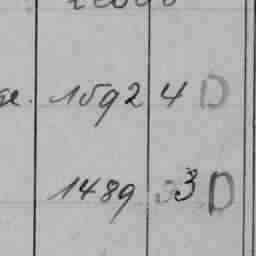 1592 4 D
1489 3 D